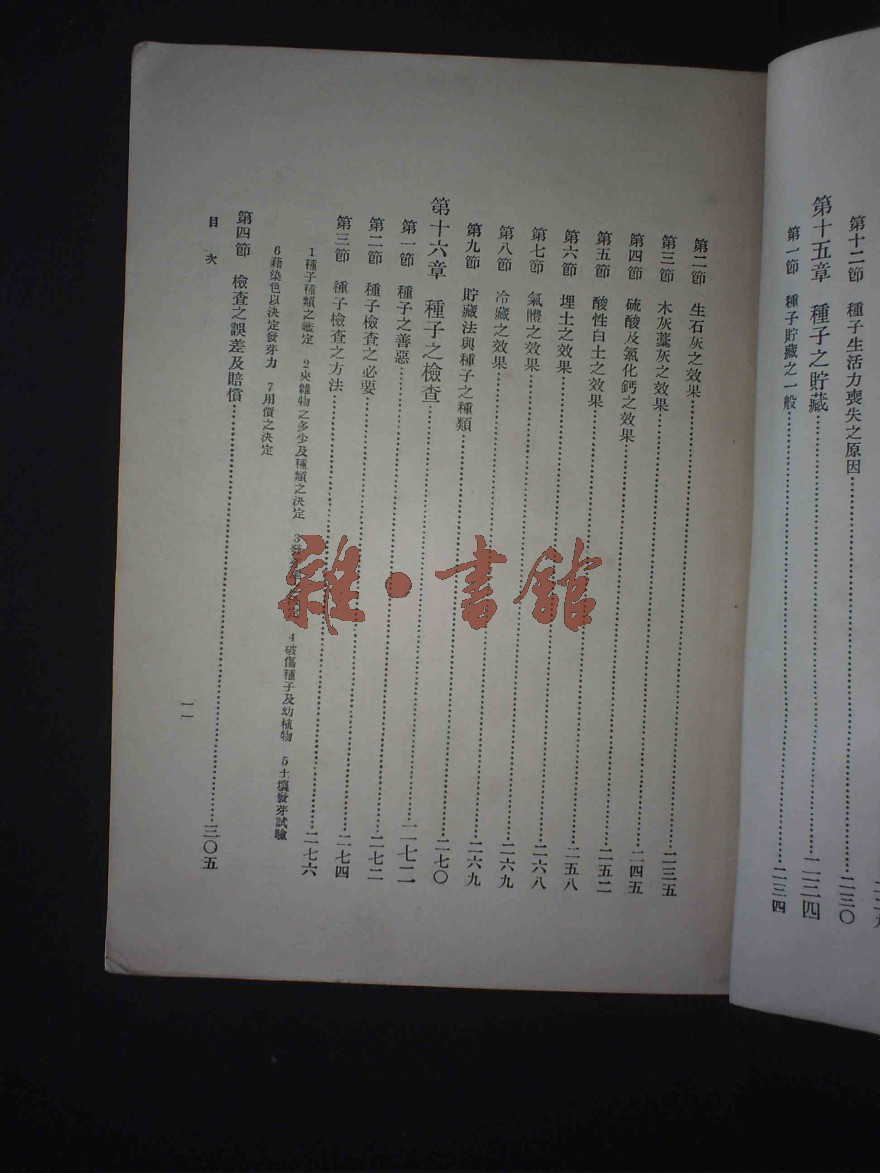 第十二節 種子生活力喪失之原因……二三〇
第十五章 種子之貯藏……二三四
第一節 種子貯藏之一般……二三四
第二節 生石灰之效果……二三五
第三節 木灰藁灰之效果……二四五
第四節 硫酸及氯化鈣之效果……二五二
第五節 酸性白土之效果……二五八
第六節 埋土之效果……二六八
第七節 氣體之效果……二六九
第八節 冷藏之效果……二六九
第九節 貯藏法與種子之種類……二七〇
第十六章 種子之檢查……二七二
第一節 種子之善惡……二七二
第二節 種子檢查之必要……二七四
第三節 種子檢查之方法……二七六
1種子種類之鑑定 2夾雜物之多少及種類之決定 3 4破傷種子及幼植物 5土壤發芽試驗
6藉染色以決定發芽力 7用價之決定
第四節 檢查之誤差及賠償……三〇五
目次
一一
雜·書館